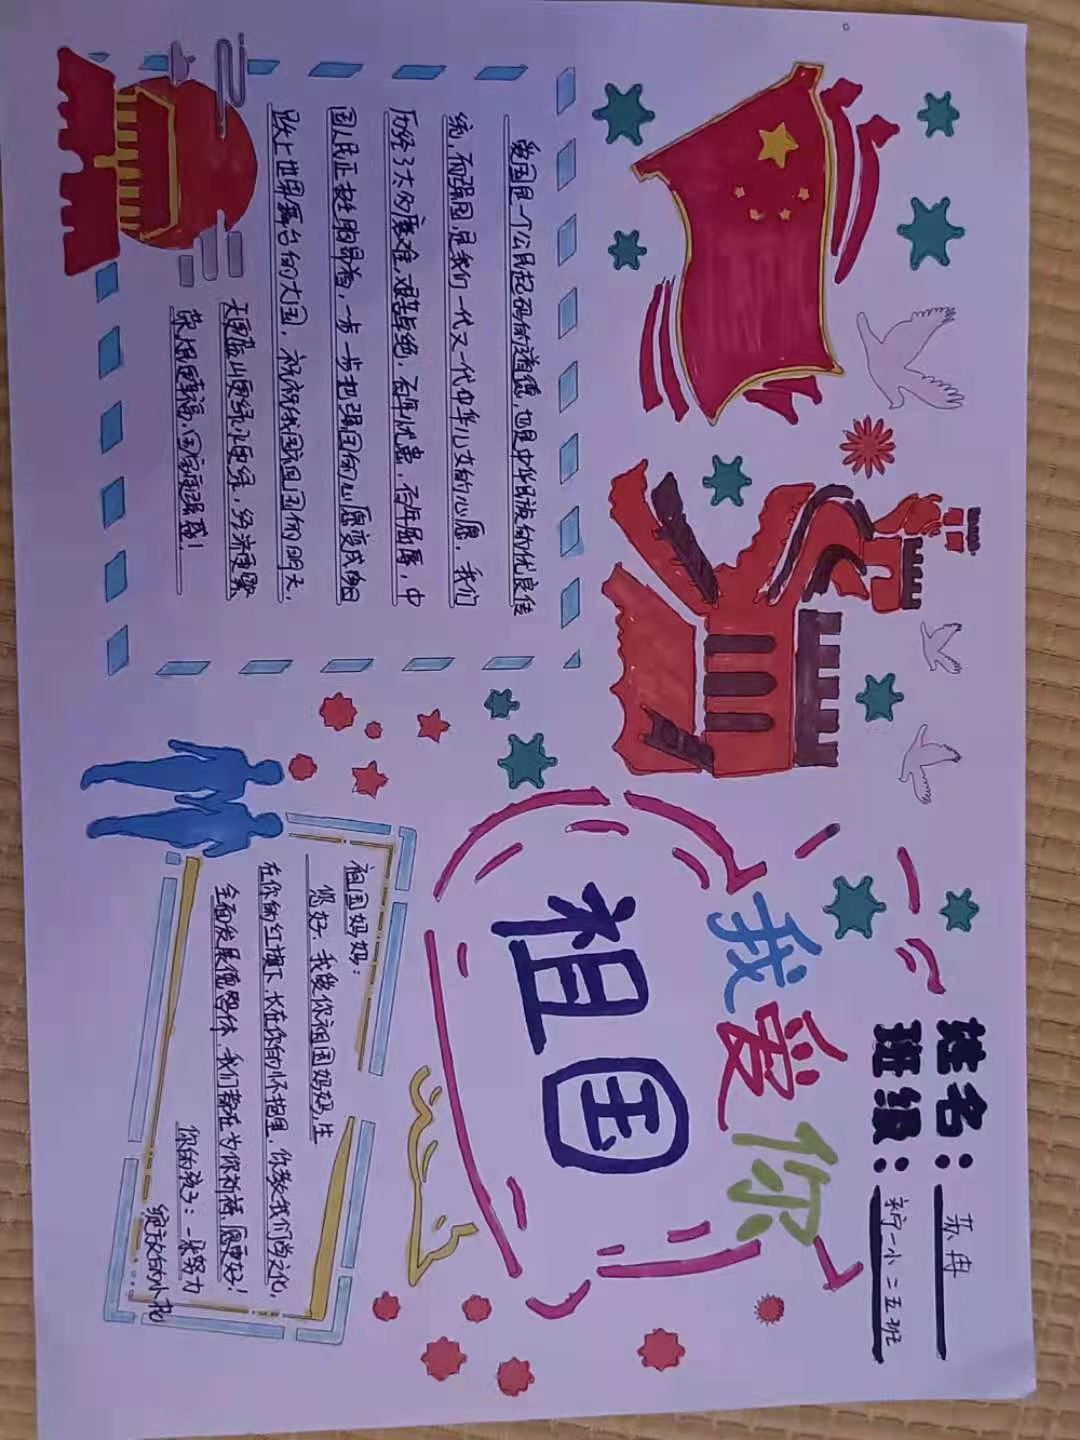 姓名：苏冉
班级：新宁一小二五班
我爱你
祖国
爱国是一个公民起码的道德，也是中华民族的优良传
统，而强国，是我们一代又一代中华儿女的心愿，我们
历经了太多磨难，艰苦卓绝，百年忧患，百年屈辱，中
国人民正挺，一步一步把强国的心愿变成
跃上世界舞台的大国，祝的明天，
天更蓝山更绿水更绿，经济更繁
荣，人民更幸福，国家更强盛！
祖国妈妈：
您好，我爱你祖国妈妈，生
在你的红旗下，长在你的怀抱里，你教我们学文化，
全面发展德智体，我们都在为你祈祷，愿更好！
你的孩子：一张努力
绽放的小花